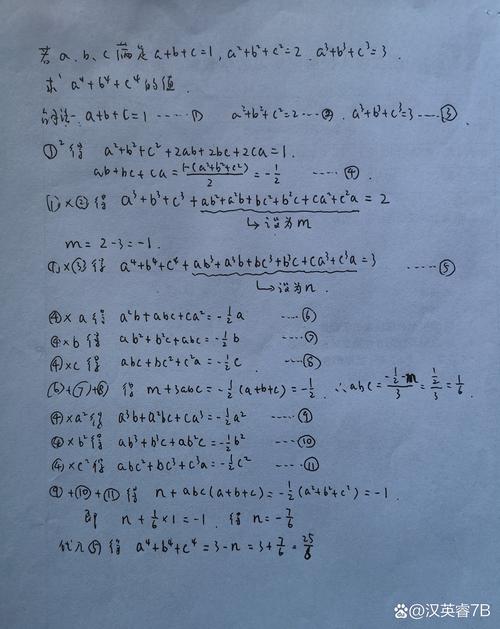 若a、b、c满足a+b+c=1, a²+b²+c²=2. a³+b³+c³=3.
求 a⁴+b⁴+c⁴的值.
a+b+c=1 ······① a²+b²+c²=2 ···② a³+b³+c³=3 ····③
①²得 a²+b²+c²+2ab+2bc+2ca=1.
ab+bc+ca=\frac{1-(a²+b²+c²)}{2}=-\frac{1}{2} ······④
①×②得 a³+b³+c³+ab²+a²b+bc²+b²c+ca²+c²a=2
↳设为m
m=2-3=-1.
①×③得 a⁴+b⁴+c⁴+ab³+a³b+bc³+b³c+ca³+c³a=3 ······⑤
↳设为n.
④×a得 a²b+abc+ca²=-\frac{1}{2}a ····⑥
④×b得 ab²+b²c+abc=-\frac{1}{2}b ····⑦
④×c得 abc+bc²+c²a=-\frac{1}{2}c ····⑧
⑥+⑦+⑧ 得 m+3abc=-\frac{1}{2}(a+b+c)=-\frac{1}{2}. ∴abc=\frac{-\frac{1}{2}-m}{3}=\frac{\frac{1}{2}}{3}=\frac{1}{6}
④×a²得 a³b+a²bc+ca³=-\frac{1}{2}a² ····⑨
④×b²得 ab³+b³c+ab²c=-\frac{1}{2}b² ····⑩
④×c²得 abc²+bc³+c³a=-\frac{1}{2}c² ····⑪
⑨+⑩+⑪得 n+abc(a+b+c)=-\frac{1}{2}(a²+b²+c²)=-1.
即 n+\frac{1}{6}×1=-1. 得n=-\frac{7}{6}
代入⑤得 a⁴+b⁴+c⁴=3-n=3+\frac{7}{6}=\frac{25}{6}
@汉英睿7B